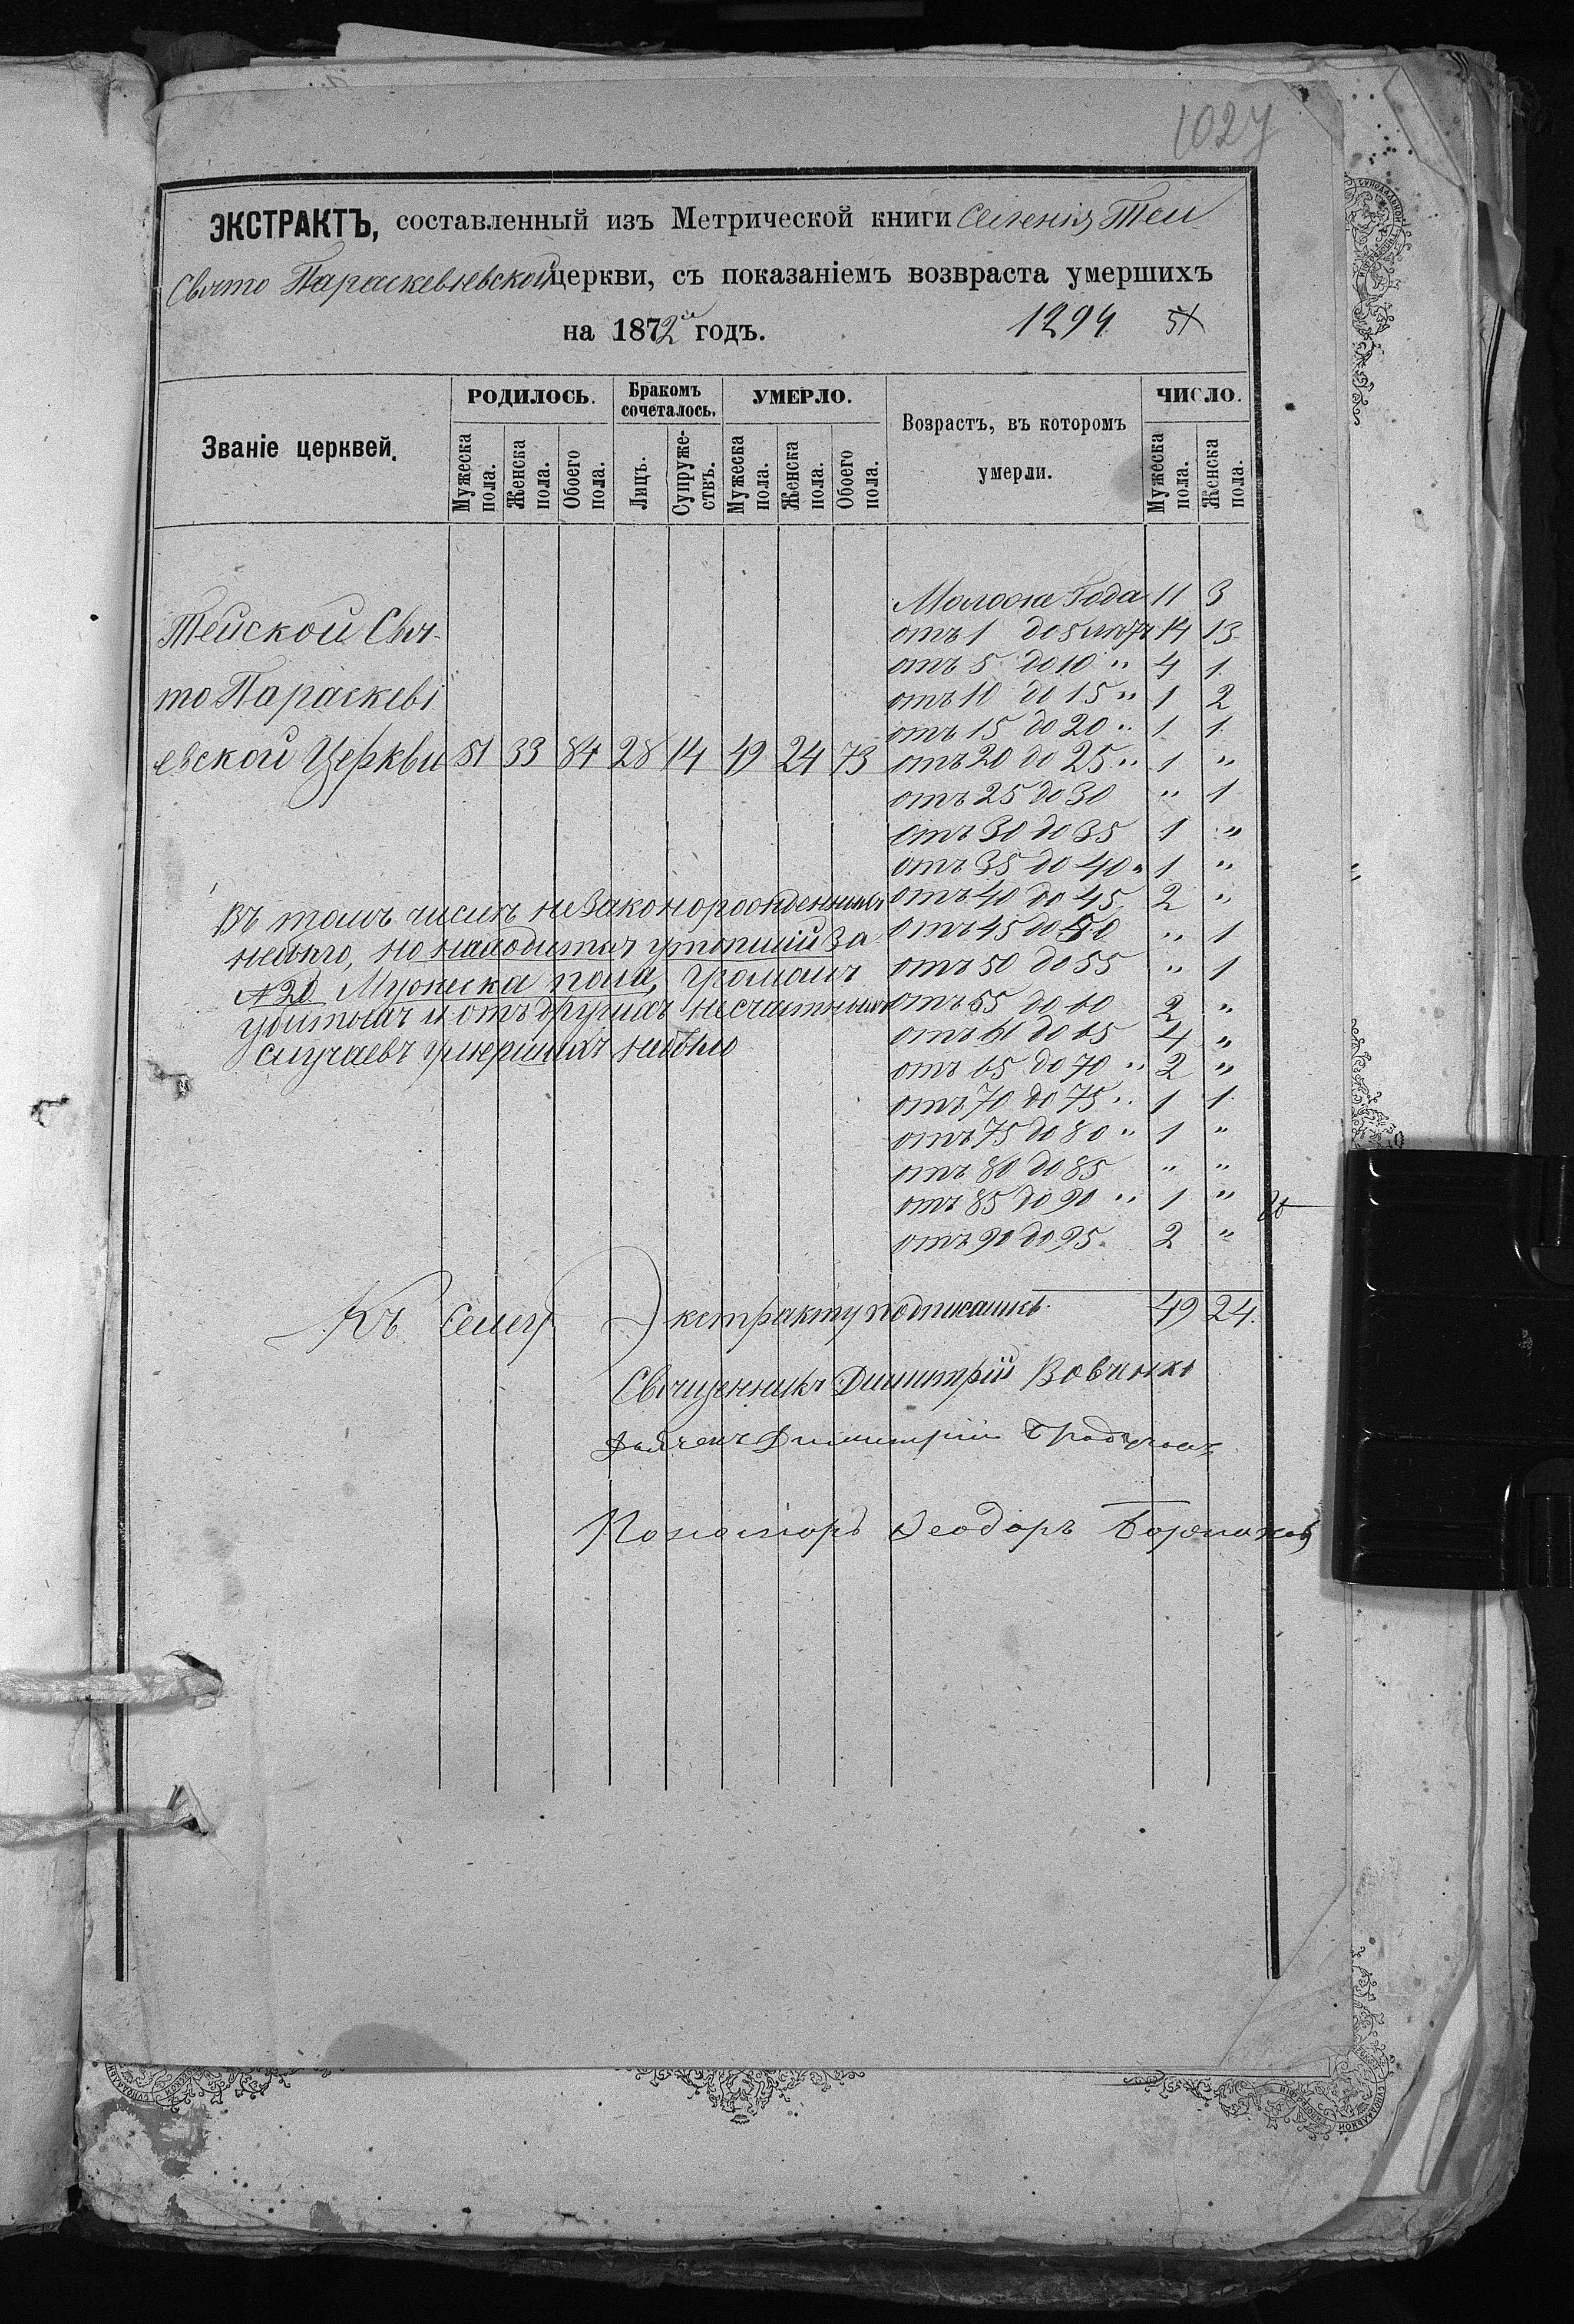 1027
ЭКСТРАКТЪ, составленный изъ Метрической книги Селенія Теи
Свято Параскевіевской церкви, съ показаніемъ возвраста умершихъ
на 1872й годъ. 1294
Званіе церквей.
РОДИЛОСЬ.
Мужеска пола.
Женска пола.
Обоего пола.
Бракомъ сочеталось.
Лицъ.
Супружествъ.
УМЕРЛО.
Мужеска пола.
Женска пола.
Обоего пола.
Возрастъ, въ которомъ
умерли.
ЧИСЛО.
Мужеска пола.
Женска пола.
Тейской Свя-
то Параскеві
евской Церкви 51 33 84 28 14 49 24 73
Моложе Года 11 3
отъ 1 до 5 лѣтъ 14 13
отъ 5 до 10 " 4 1
отъ 10 до 15 " 1 2
отъ 15 до 20 " 1 1
отъ 20 до 25 " 1 "
отъ 25 до 30 " 1
отъ 30 до 35 1 "
отъ 35 до 40 " 1 "
отъ 40 до 45 2 "
отъ 45 до 50 " 1
отъ 50 до 55 " 1
отъ 55 до 60 2 "
отъ 61 до 65 4 "
отъ 65 до 70 " 2 "
отъ 70 до 75 " 1 1
отъ 75 до 80 " 1 "
отъ 80 до 85 " "
отъ 85 до 90 " 1 "
отъ 90 до 95 2 "
49 24.
Въ томъ числѣ незаконорожденныхъ
небыло, но находится утопшій за
№ 20 Мужеска пола, громомъ
убитыхъ и отъ другихъ несчастныхъ
случаевъ умершихъ небыло
Къ сему Экстракту подписались
Священникъ Димитрій
Дьячекъ Димитрій
Пономаръ Ѳеодоръ